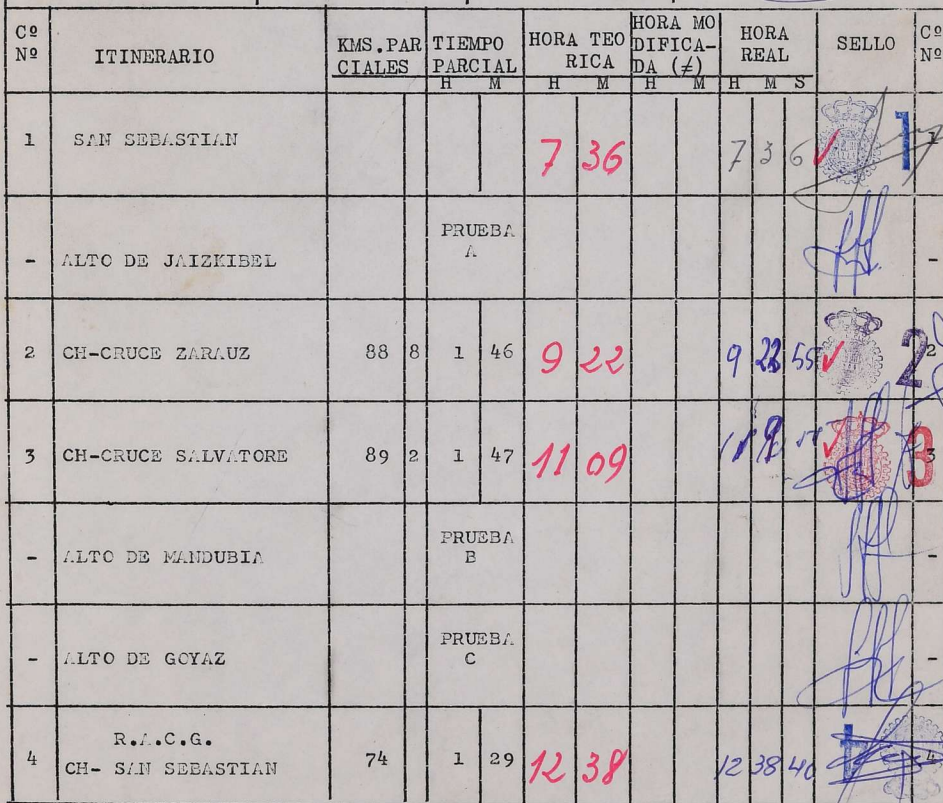 Cº Nº ITINERARIO KMS.PARCIALES TIEMPO PARCIAL HORA TEORICA HORA MODIFICADA (≠) HORA REAL SELLO Cº Nº
H M H M H M H M S
1 SAN SEBASTIAN 7 36 7 3 6 1 1
- ALTO DE JAIZKIBEL PRUEBA A -
2 CH-CRUCE ZARAUZ 88 8 1 46 9 22 9 22 55 2 2
3 CH-CRUCE SALVATORE 89 2 1 47 11 09 3 3
- ALTO DE MANDUBIA PRUEBA B -
- ALTO DE GOYAZ PRUEBA C -
R.A.C.G.
4 CH- SAN SEBASTIAN 74 1 29 12 38 12 38 40 4